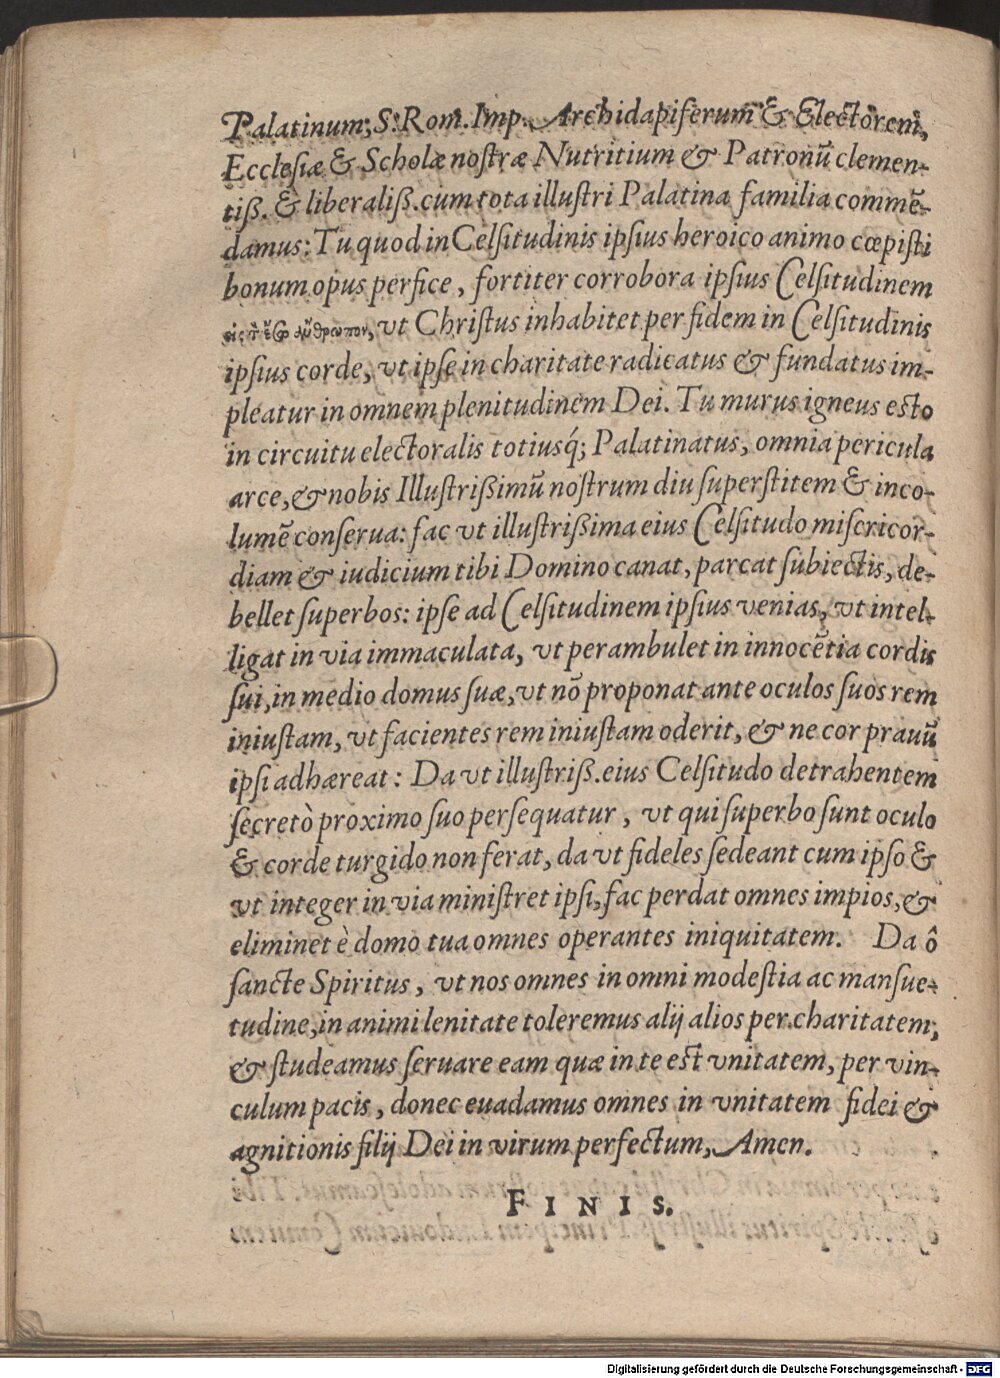 Palatinum, S. Rom. Imp. Archidapiferum & Electorem,
Ecclesiæ & Scholæ nostræ Nutritium & Patronū clemen-
tiß. & liberaliß. cum tota illustri Palatina familia commē-
damus: Tu quod in Celsitudinis ipsius heroico animo cœpisti
bonum opus perfice, fortiter corrobora ipsius Celsitudinem
εἰς τ̀ ἔσω ἄνθρωπον, vt Christus inhabitet per fidem in Celsitudinis
ipsius corde, vt ipse in charitate radicatus & fundatus im-
pleatur in omnem plenitudinem Dei. Tu murus igneus esto
in circuitu electoralis totiusq́; Palatinatus, omnia pericula
arce, & nobis Illustrißimū nostrum diu superstitem & inco-
lumē conserua: fac vt illustrißima eius Celsitudo misericor-
diam & iudicium tibi Domino canat, parcat subiectis, de-
bellet superbos: ipse ad Celsitudinem ipsius venias, vt intel-
ligat in via immaculata, vt perambulet in innocētia cordis
sui, in medio domus suæ, vt nō proponat ante oculos suos rem
iniustam, vt facientes rem iniustam oderit, & ne cor prauū
ipsi adhæreat: Da vt illustriß. eius Celsitudo detrahentem
secretò proximo suo persequatur, vt qui superbo sunt oculo
& corde turgido non ferat, da vt fideles sedeant cum ipso &
vt integer in via ministret ipsi, fac perdat omnes impios, &
eliminet è domo tua omnes operantes iniquitatem. Da ô
sancte Spiritus, vt nos omnes in omni modestia ac mansue-
tudine, in animi lenitate toleremus alij alios per charitatem,
& studeamus seruare eam quæ in te est vnitatem, per vin-
culum pacis, donec euadamus omnes in vnitatem fidei &
agnitionis filij Dei in virum perfectum, Amen.
FINIS.
Digitalisierung gefördert durch die Deutsche Forschungsgemeinschaft - DFG